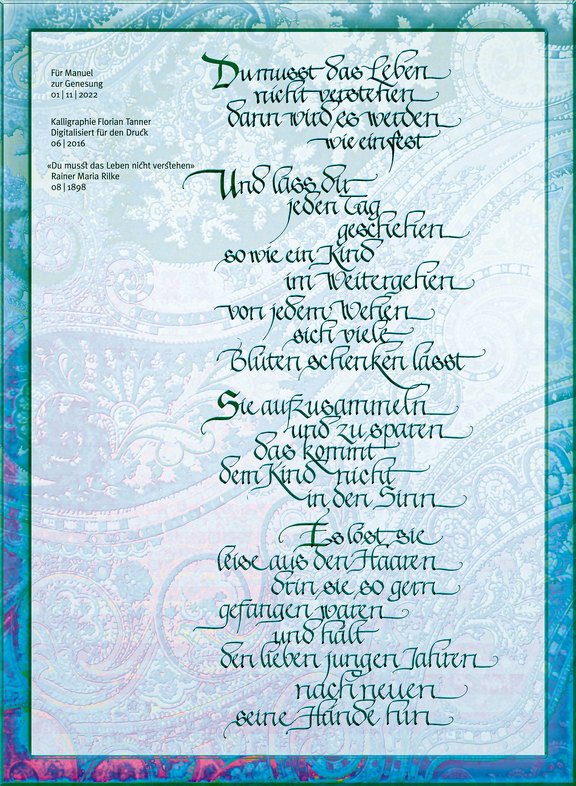 Für Manuel
zur Genesung
01 | 11 | 2022
Kalligraphie Florian Tanner
Digitalisiert für den Druck
06 | 2016
«Du musst das Leben nicht verstehen»
Rainer Maria Rilke
08 | 1898
Du musst das Leben
nicht verstehen
dann wird es werden
wie ein fest
Und lass dir
jeden Tag
geschehen
so wie ein Kind
im Weitergehen
von jedem Wehen
sich viele
Blüten schenken lässt
Sie aufzusammeln
und zu sparen
das kommt
dem Kind nicht
in den Sinn
Es löst sie
leise aus den Haaren
drin sie so gern
gefangen waren
und hält
den lieben jungen Jahren
nach neuen
seine Hände hin